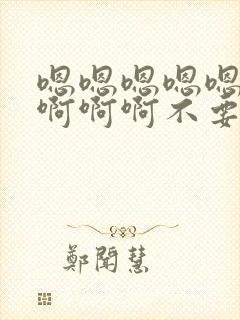 嗯嗯嗯嗯嗯
啊啊啊不要
鄭聞慧